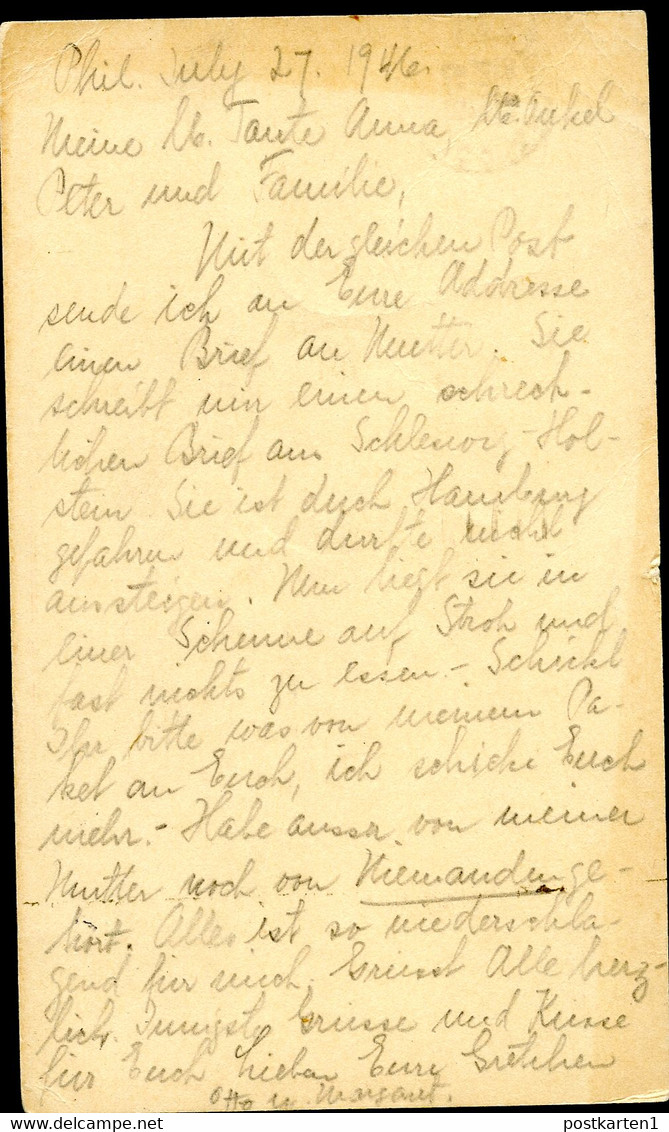 Phil. July 27. 1946.
Meine lb. Tante Anna, lb. Onkel
Peter und Familie,
Mit der gleichen Post
sende ich an Eure Addresse
einen Brief an Mutter. Sie
schreibt mir einen schreck-
lichen Brief aus Schleswig-Hol-
stein. Sie ist duch Hamburg
gefahren und durfte nicht
aussteigen. Nun liegt sie in
einer Scheune auf Stroh und
fast nichts zu essen. - Schickt
Ihr bitte was von meinem Pa-
ket an Euch, ich schicke Euch
mehr. - Habe ausser von meiner
Mutter noch von Niemanden ge-
hört. Alles ist so niederschla-
gend für mich. Grüsst Alle herz-
lich. Innigste Grüsse und Küsse
für Euch Lieben Eure Gretchen
Otto u. Margaret.
postkarten1